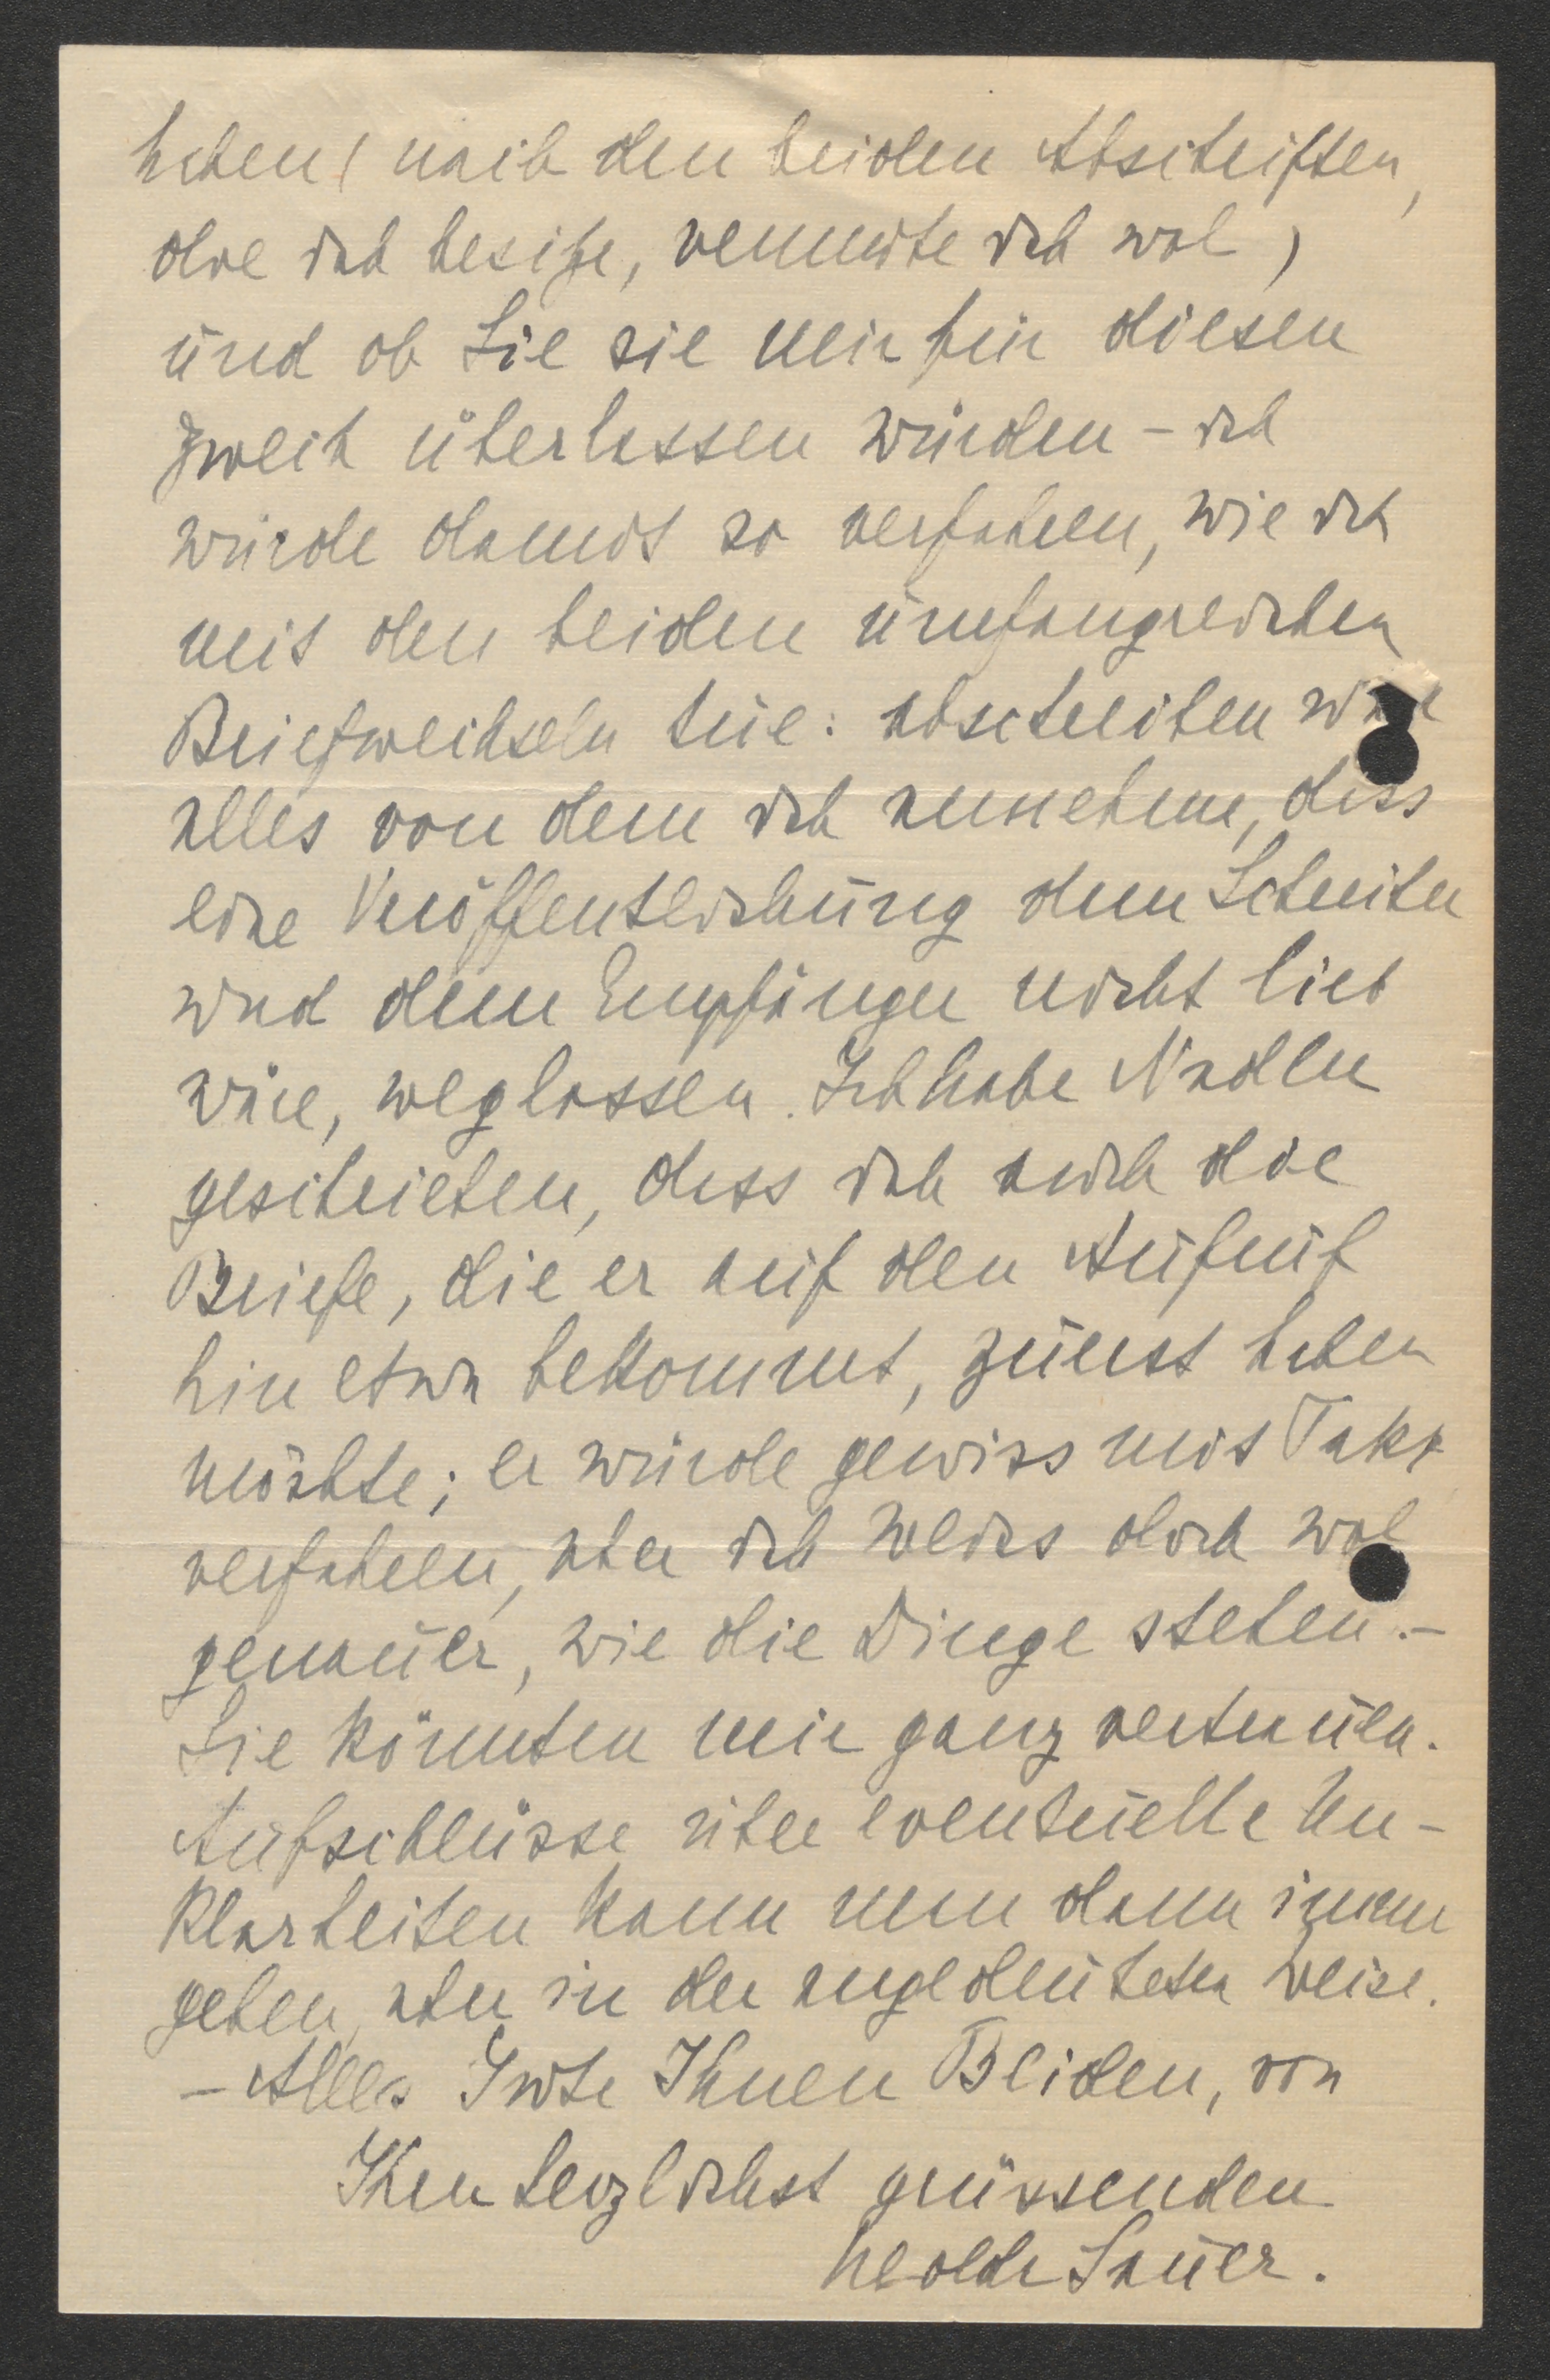 haben (nach den beiden Abschriften,
die ich besitze, vermute ich wol)
und ob Sie sie mir für diesen
Zweck überlassen würden – ich
würde damit so verfahren, wie ich
mit den beiden umfangreichen
Briefwechseln tue: abschreiben und
alles von dem ich annehme, dass
eine Veröffentlichung dem Schreiber
und dem Empfänger nicht lieb
wäre, weglassen. Ich habe Nadler
geschrieben, dass ich auch die
Briefe, die er auf den Aufruf
hin etwa bekommt, zuerst haben
möchte; er würde gewiss mit Takt
verfahren, aber ich weiss doch wol
genauer, wie die Dinge stehen. –
Sie könnten mir ganz vertrauen.
Aufschlüsse über eventuelle Un-
klarheiten kann man dann immer
geben, aber in der angedeuteten Weise.
– Alles Gute Ihnen Beiden, von
Ihrer herzlichst grüssenden
Hedda Sauer.